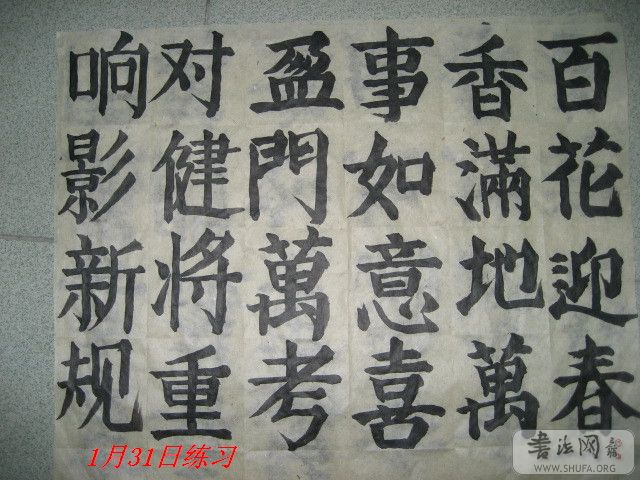 百花迎春
香滿地萬
事如意喜
盈門萬考
对健将重
响影新规
1月31日练习
书法网
WWW.SHUFA.ORG